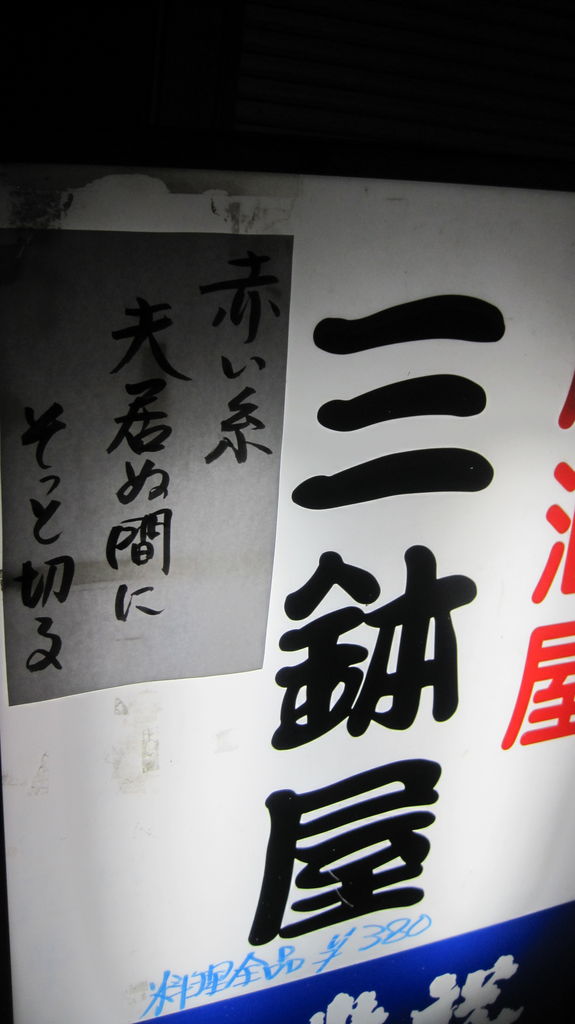 酒屋
三鉢屋
赤い糸
夫居ぬ間に
そっと切る
料理全品￥380